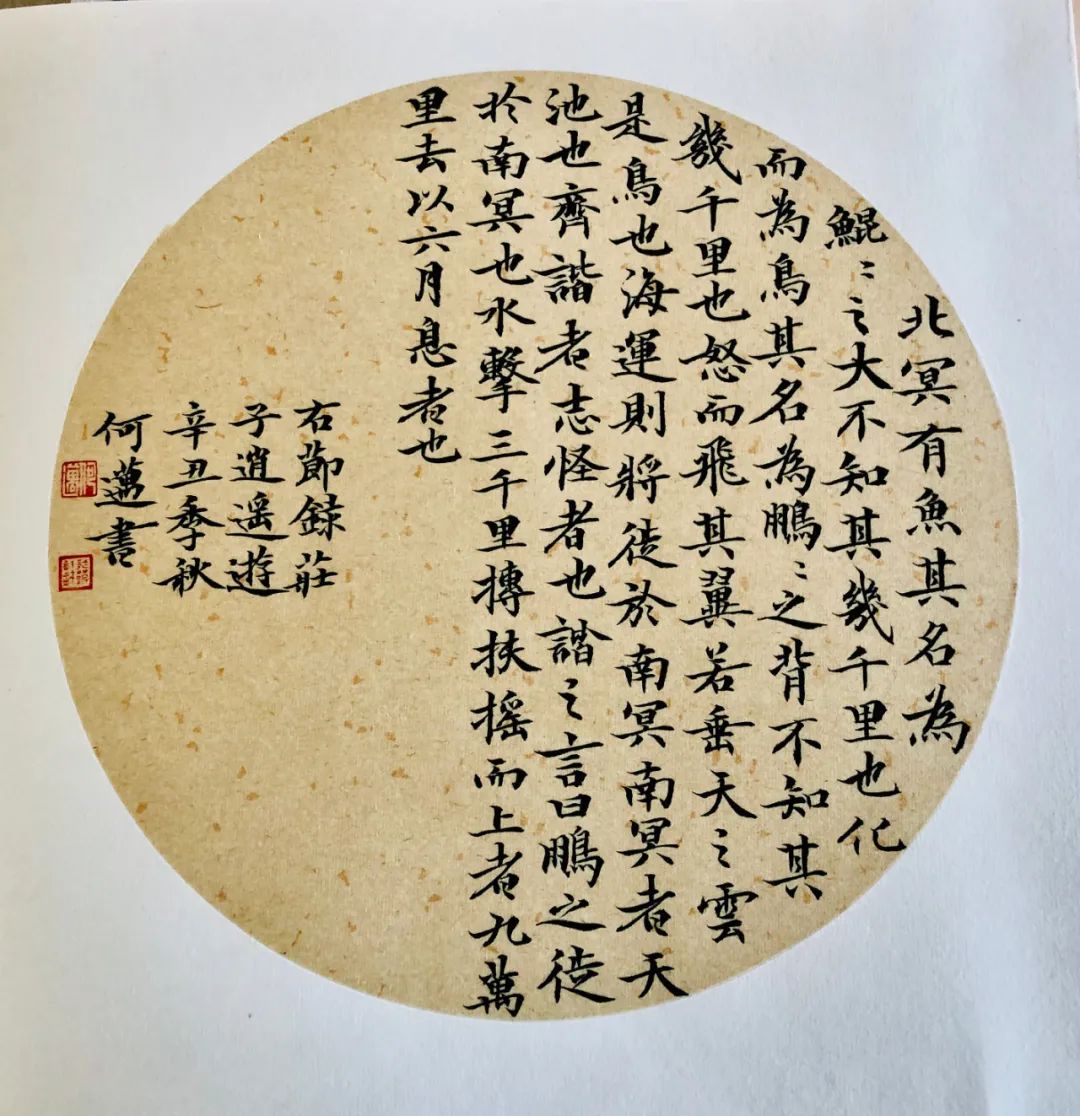 北冥有魚其名為
鯤〻之大不知其幾千里也化
而為鳥其名為鵬〻之背不知其
幾千里也怒而飛其翼若垂天之雲
是鳥也海運則將徒於南冥南冥者天
池也齊諧者志怪者也諧之言曰鵬之徒
於南冥也水擊三千里摶扶搖而上者九萬
里去以六月息者也
右節錄莊
子逍遥遊
辛丑季秋
何邁書